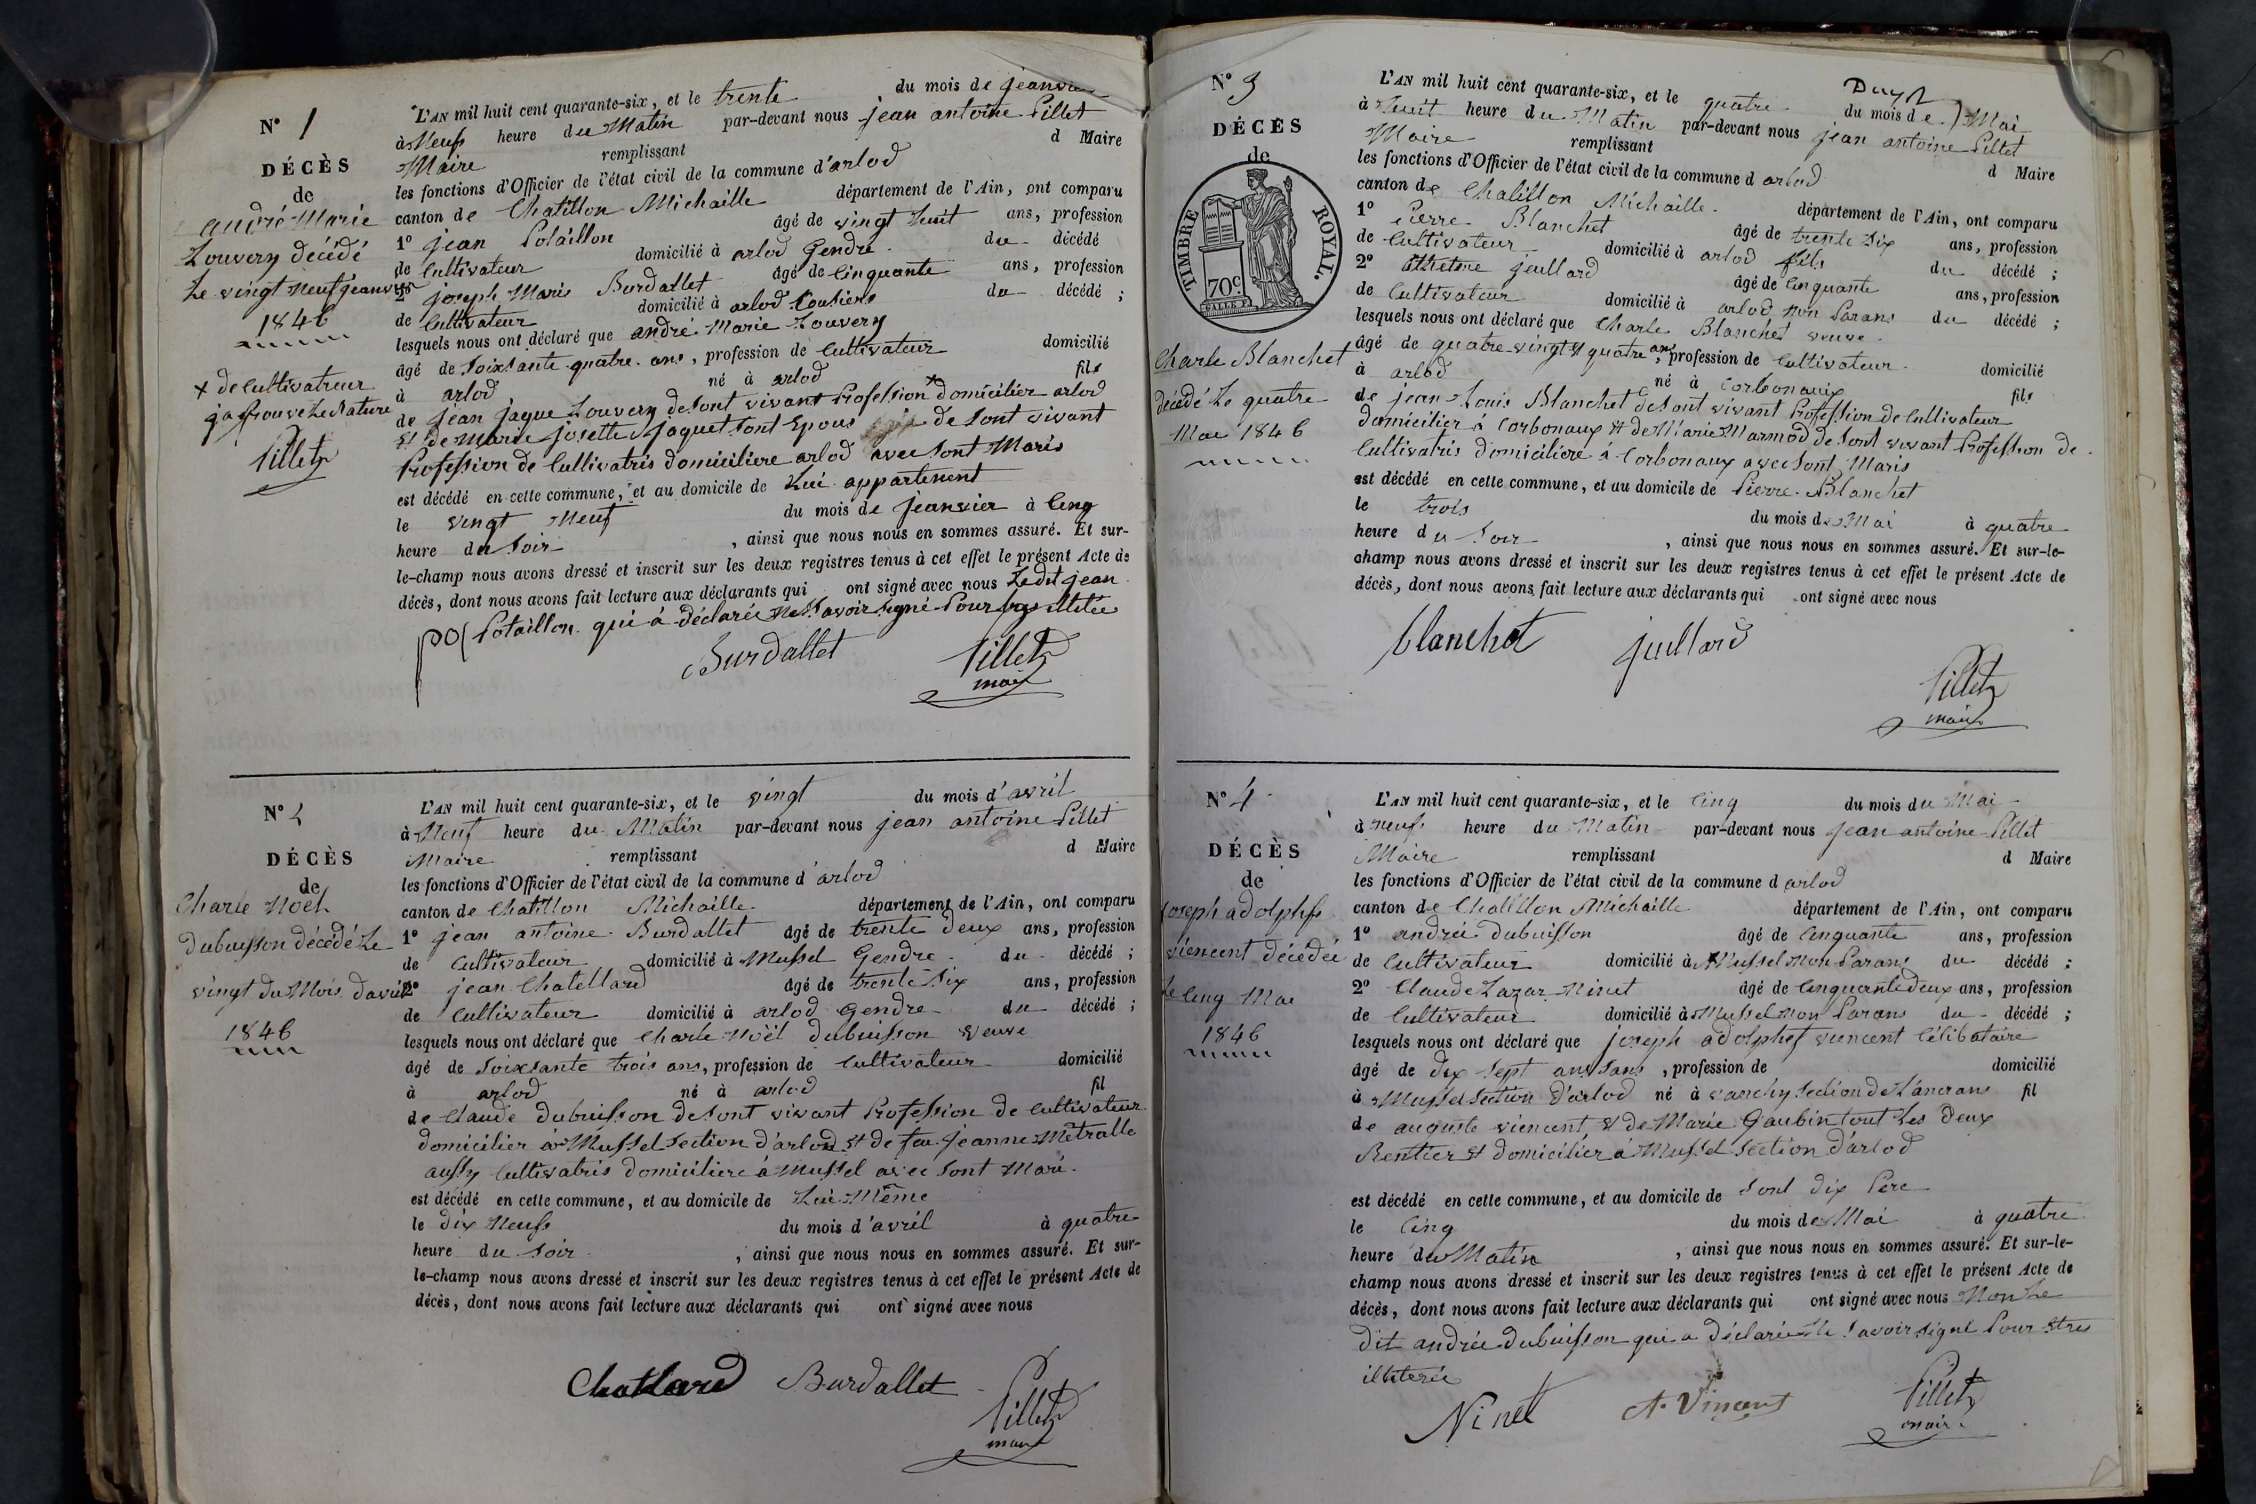 N° 1
DÉCÈS
de
andré Marie
Louvery décédé
Le vingt neuf jeanvier
1846
x de cultivatreur
japrouve Le Nature
Pillet
L'AN mil huit cent quarante-six, et le trente du mois de jeanvier
à Neuf heure du Matin par-devant nous jean antoine Pillet
Maire remplissant d Maire
les fonctions d'Officier de l'état civil de la commune d'arlod
canton de Chatillon Michaille département de l'Ain, ont comparu
1° jean Potaillon âgé de vingt huit ans, profession
de Cultivateur domicilié à arlod Gendre du décédé
2° joseph Marie Burdallet âgé de Cinquante ans, profession
de Cultivateur domicilié à arlod Cousiens du décédé ;
lesquels nous ont déclaré que andré Marie Louvery
âgé de Soixsante quatre ans, profession de Cultivateur domicilié
à arlod né à arlod fils
de jean jaque Louvery de Sont vivant Profession x domicilier arlod
et de Marie josette jaquet Sont Epous de Sont vivant
Profession de Cultivatris domiciliere arlod avec Sont Maris
est décédé en cette commune, et au domicile de Lui appartenent
le vingt Neuf du mois de jeanvier à Cinq
heure du Soir , ainsi que nous nous en sommes assuré. Et sur-
le-champ nous avons dressé et inscrit sur les deux registres tenus à cet effet le présent Acte de
décès, dont nous avons fait lecture aux déclarants qui ont signé avec nous Ledit jean
Potaillon qui à déclarée Ne Savoir signé Pour
Burdallet Pillet
maire
N° 2
DÉCÈS
de
Charle Noël
Dubuisson décédé Le
vingt du Mois davril
1846
L'AN mil huit cent quarante-six, et le vingt du mois d'avril
à Neuf heure du Matin par-devant nous jean antoine Pillet
Maire remplissant d Maire
les fonctions d'Officier de l'état civil de la commune d'arlod
canton de Chatillon Michaille département de l'Ain, ont comparu
1° jean antoine Burdallet âgé de trente deux ans, profession
de Cultivateur domicilié à Mussel Gendre du décédé ;
2° jean Chatellard âgé de trente Six ans, profession
de Cultivateur domicilié à arlod Gendre du décédé ;
lesquels nous ont déclaré que Charle Noël Dubuisson veuve
âgé de Soixsante trois ans, profession de Cultivateur domicilié
à arlod né à arlod fil
de Claude dubuisson de Sont vivant Profession de Cultivateur
domicilier à Mussel Section d'arlod et de feu jeanne Métralle
aussy Cultivatris domiciliere à Mussel avec Sont Mari
est décédé en cette commune, et au domicile de Lui Même
le dix Neuf du mois d'avril à quatre
heure du Soir , ainsi que nous nous en sommes assuré. Et sur-
le-champ nous avons dressé et inscrit sur les deux registres tenus à cet effet le présent Acte de
décès, dont nous avons fait lecture aux déclarants qui ont signé avec nous
Chatlard Burdallet Pillet
maire
N° 3
DÉCÈS
de
TIMBRE ROYAL.
70c.
Charle Blanchet
décédé Le quatre
Mai 1846
L'AN mil huit cent quarante-six, et le quatre du mois de Mai
à huit heure du Matin par-devant nous jean antoine Pillet
Maire remplissant d Maire
les fonctions d'Officier de l'état civil de la commune d arlod
canton de Chatillon Michaille département de l'Ain, ont comparu
1° Pierre Blanchet âgé de trente Six ans, profession
de Cultivateur domicilié à arlod fils du décédé ;
2° juillard âgé de Cinquante ans, profession
de Cultivateur domicilié à arlod Non Parans du décédé ;
lesquels nous ont déclaré que Charle Blanchet veuve
âgé de quatre vingt et quatre ans, profession de Cultivateur domicilié
à arlod né à Corbonaux fils
de jean Louis Blanchet de Sont vivant Profession de Cultivateur
domicilier à Corbonaux et de Marie Marmod de Sont vivant Profession de
Cultivatris domiciliere à Corbonaux avec Sont Maris
est décédé en cette commune, et au domicile de Pierre Blanchet
le trois du mois de Mai à quatre
heure du Soir , ainsi que nous nous en sommes assuré. Et sur-le-
champ nous avons dressé et inscrit sur les deux registres tenus à cet effet le présent Acte de
décès, dont nous avons fait lecture aux déclarants qui ont signé avec nous
blanchet juillard
Pillet
maire
N° 4
DÉCÈS
de
joseph adolphe
viencent décédée
Le Cinq Mai
1846
L'AN mil huit cent quarante-six, et le Cinq du mois du Mai
à neuf heure du Matin par-devant nous jean antoine Pillet
Maire remplissant d Maire
les fonctions d'Officier de l'état civil de la commune d arlod
canton de Chatillon Michaille département de l'Ain, ont comparu
1° andrée dubuisson âgé de Cinquante ans, profession
de Cultivateur domicilié à Mussel Non Parans du décédé ;
2° Claude Lazar Ninet âgé de Cinquante deux ans, profession
de Cultivateur domicilié à Mussel Non Parans du décédé ;
lesquels nous ont déclaré que joseph adolphe viencent Célibataire
âgé de dix Sept ans Sans , profession de domicilié
à Mussel Section d'arlod né à vanchy Section de Lancrans fil
de auguste viencent et de Marie Gaubin tout Les deux
Rentier et domicilier à Mussel Section d'arlod
est décédé en cette commune, et au domicile de Sont dix Pere
le Cinq du mois de Mai à quatre
heure du Matin , ainsi que nous nous en sommes assuré. Et sur-le-
champ nous avons dressé et inscrit sur les deux registres tenus à cet effet le présent Acte de
décès, dont nous avons fait lecture aux déclarants qui ont signé avec nous Non Le
dit andrée dubuisson qui a déclarée Ne Savoir signé Pour etres
illiterée
Ninet A. Vincent Pillet
maire